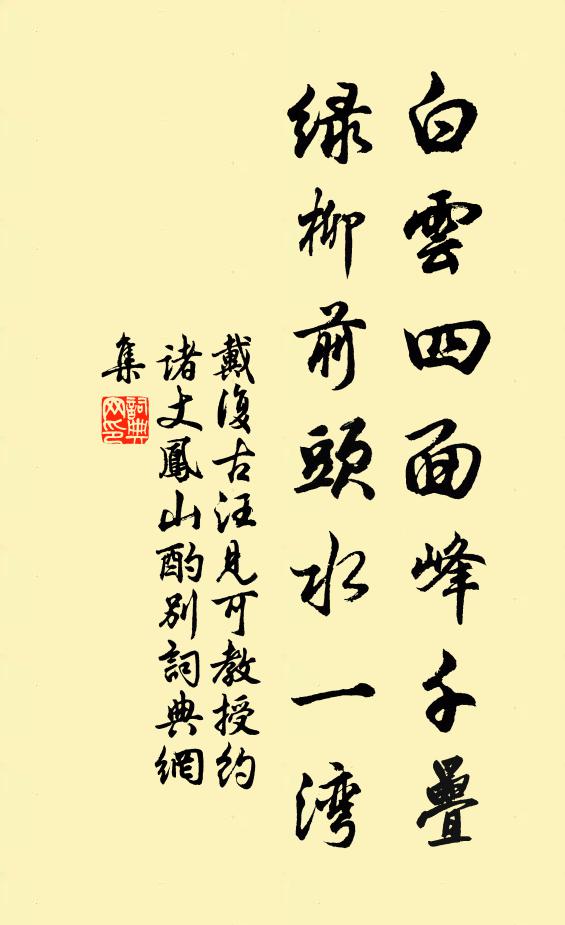 白雲四面峰千疊
緑柳前頭水一湾
戴復古汪見可教授約
诸丈鳳山酌别詞典網
集
詞典網印